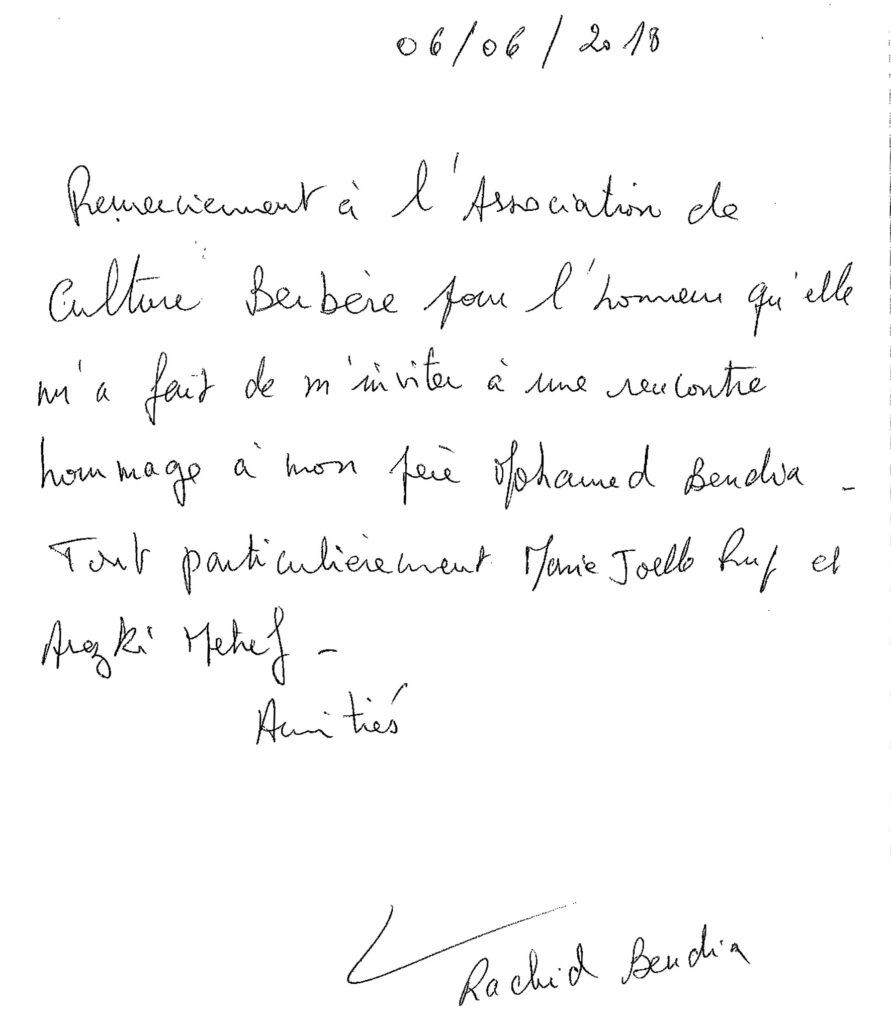 06/06/2018
Remerciement à l'Association de
Culture Berbère pour l'honneur qu'elle
m'a fait de m'inviter à une rencontre
hommage à mon père Mohamed Bendia -
Tout particulièrement Marie Joelle et
Arezki Metref -
Amitiés
Rachid Bendia